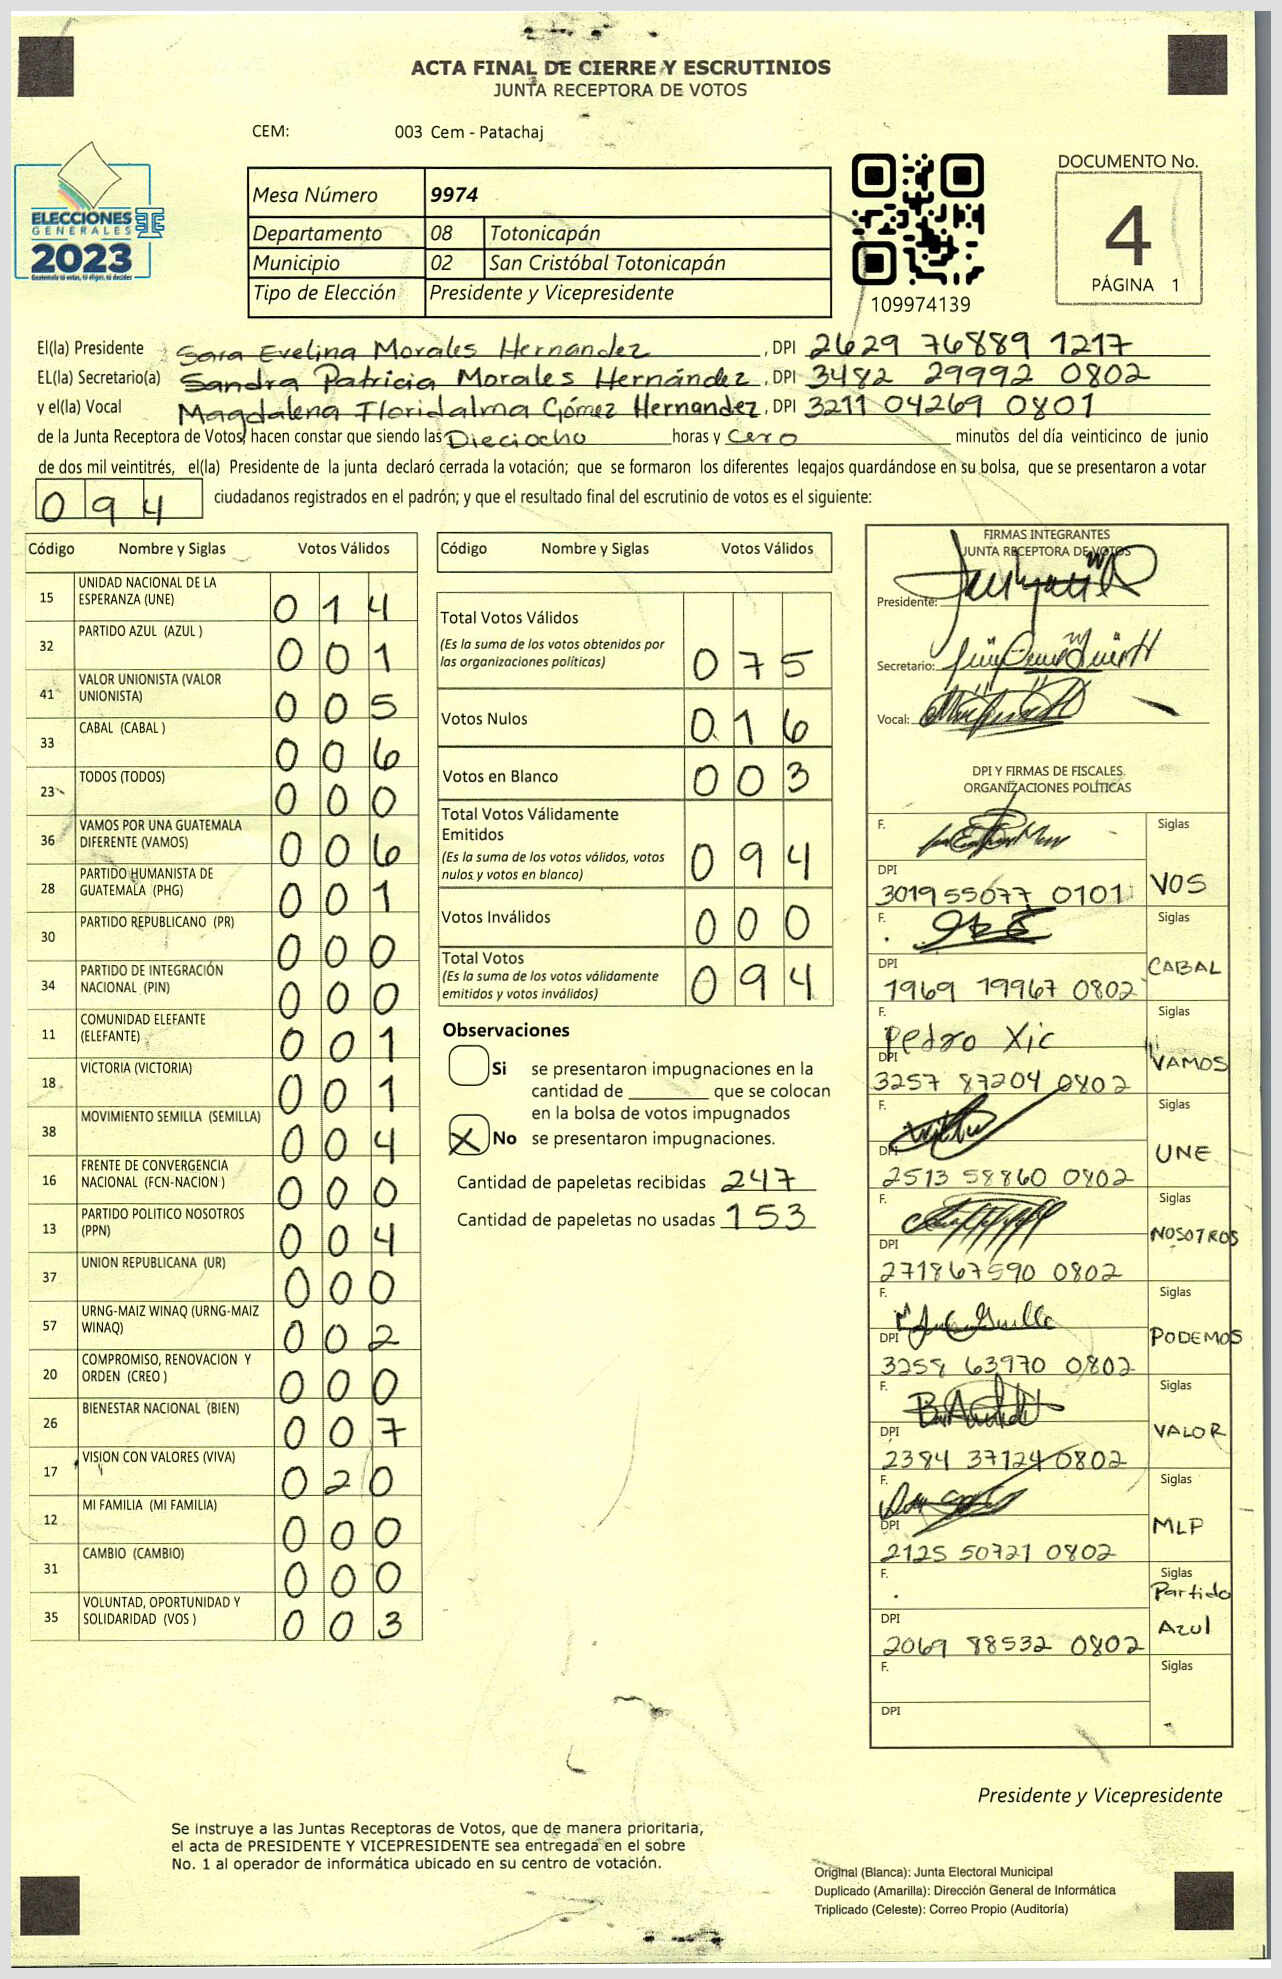 ACTA FINAL DE CIERRE Y ESCRUTINIOS
JUNTA RECEPTORA DE VOTOS
CEM: 003 Cem - Patachaj
ELECCIONES
GENERALES
2023
Guatemala tú votas, tú eliges, tú decides
Mesa Número 9974
Departamento 08 Totonicapán
Municipio 02 San Cristóbal Totonicapán
Tipo de Elección Presidente y Vicepresidente
109974139
DOCUMENTO No.
4
PÁGINA 1
El(la) Presidente Sara Evelina Morales Hernandez , DPI 2629 76889 1217
EL(la) Secretario(a) Sandra Patricia Morales Hernández , DPI 3482 29992 0802
y el(la) Vocal Magdalena Floridalma Gómez Hernandez , DPI 3211 04269 0801
de la Junta Receptora de Votos, hacen constar que siendo las Dieciocho horas y Cero minutos del día veinticinco de junio
de dos mil veintitrés, el(la) Presidente de la junta declaró cerrada la votación; que se formaron los diferentes legajos guardándose en su bolsa, que se presentaron a votar
094 ciudadanos registrados en el padrón; y que el resultado final del escrutinio de votos es el siguiente:
Código Nombre y Siglas Votos Válidos
15 UNIDAD NACIONAL DE LA
ESPERANZA (UNE) 014
32 PARTIDO AZUL (AZUL ) 001
41 VALOR UNIONISTA (VALOR
UNIONISTA) 005
33 CABAL (CABAL ) 006
23 TODOS (TODOS) 000
36 VAMOS POR UNA GUATEMALA
DIFERENTE (VAMOS) 006
28 PARTIDO HUMANISTA DE
GUATEMALA (PHG) 001
30 PARTIDO REPUBLICANO (PR) 000
34 PARTIDO DE INTEGRACIÓN
NACIONAL (PIN) 000
11 COMUNIDAD ELEFANTE
(ELEFANTE) 001
18 VICTORIA (VICTORIA) 001
38 MOVIMIENTO SEMILLA (SEMILLA) 004
16 FRENTE DE CONVERGENCIA
NACIONAL (FCN-NACION ) 000
13 PARTIDO POLITICO NOSOTROS
(PPN) 004
37 UNION REPUBLICANA (UR) 000
57 URNG-MAIZ WINAQ (URNG-MAIZ
WINAQ) 002
20 COMPROMISO, RENOVACION Y
ORDEN (CREO ) 000
26 BIENESTAR NACIONAL (BIEN) 007
17 VISION CON VALORES (VIVA) 020
12 MI FAMILIA (MI FAMILIA) 000
31 CAMBIO (CAMBIO) 000
35 VOLUNTAD, OPORTUNIDAD Y
SOLIDARIDAD (VOS ) 003
Código Nombre y Siglas Votos Válidos
Total Votos Válidos
(Es la suma de los votos obtenidos por
las organizaciones políticas) 075
Votos Nulos 016
Votos en Blanco 003
Total Votos Válidamente
Emitidos
(Es la suma de los votos válidos, votos
nulos y votos en blanco) 094
Votos Inválidos 000
Total Votos
(Es la suma de los votos válidamente
emitidos y votos inválidos) 094
Observaciones
Si se presentaron impugnaciones en la
cantidad de ________ que se colocan
en la bolsa de votos impugnados
X No se presentaron impugnaciones.
Cantidad de papeletas recibidas 247
Cantidad de papeletas no usadas 153
FIRMAS INTEGRANTES
JUNTA RECEPTORA DE VOTOS
Presidente:
Secretario:
Vocal:
DPI Y FIRMAS DE FISCALES
ORGANIZACIONES POLÍTICAS
F. Siglas
DPI 3019 55077 0101 VOS
F. Siglas
DPI 1969 19967 0802 CABAL
F. Pedro Xic Siglas
DPI 3257 87204 0802 VAMOS
F. Siglas
DPI 2513 58860 0802 UNE
F. Siglas
DPI 271867590 0802 NOSOTROS
F. Siglas
DPI 3258 63970 0802 PODEMOS
F. Siglas
DPI 2384 37124 0802 VALOR
F. Siglas
DPI 2125 50721 0802 MLP
F. Siglas
DPI 2069 88532 0802 Partido Azul
F. Siglas
DPI
Presidente y Vicepresidente
Se instruye a las Juntas Receptoras de Votos, que de manera prioritaria,
el acta de PRESIDENTE Y VICEPRESIDENTE sea entregada en el sobre
No. 1 al operador de informática ubicado en su centro de votación.
Original (Blanca): Junta Electoral Municipal
Duplicado (Amarilla): Dirección General de Informática
Triplicado (Celeste): Correo Propio (Auditoría)